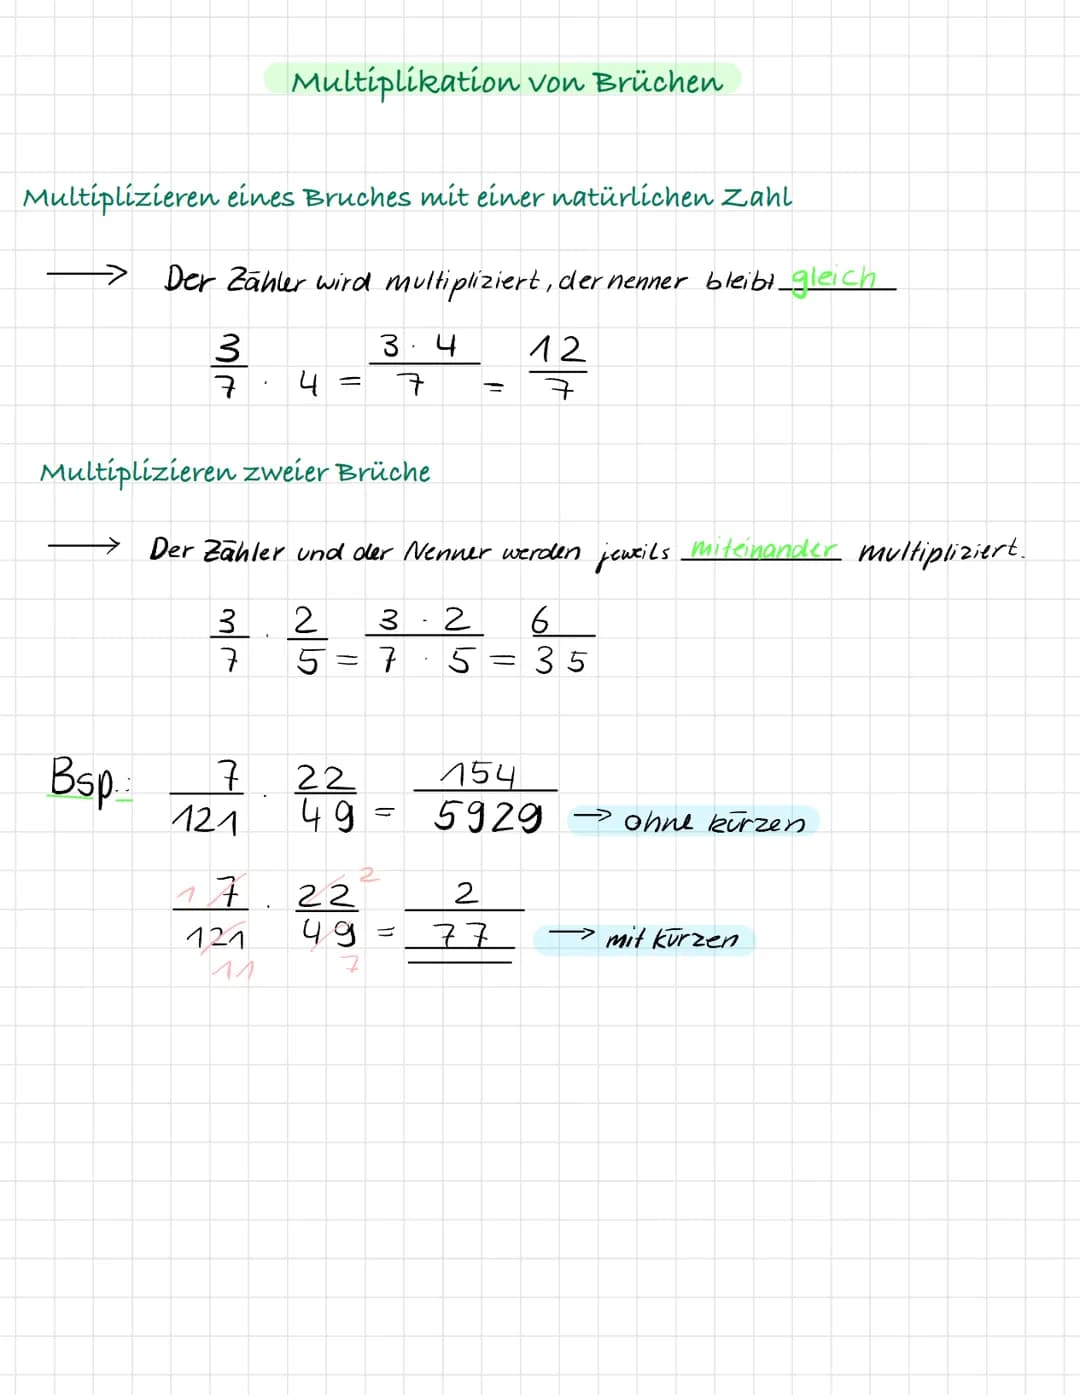 Multiplikation von Brüchen
Multiplizieren eines Bruches mit einer natürlichen Zahl
→ Der Zähler wird multipliziert, der nenner bleibt gleich
3/7 · 4 = 3 · 4/7 = 12/7
Multiplizieren zweier Brüche
→ Der Zähler und der Nenner werden jeweils miteinander multipliziert.
3/7 · 2/5 = 3 · 2/7 · 5 = 6/35
Bsp.: 7/121 · 22/49 = 154/5929 → ohne kürzen
1 7/121 11 · 22 2/49 7 = 2/77 → mit kürzen